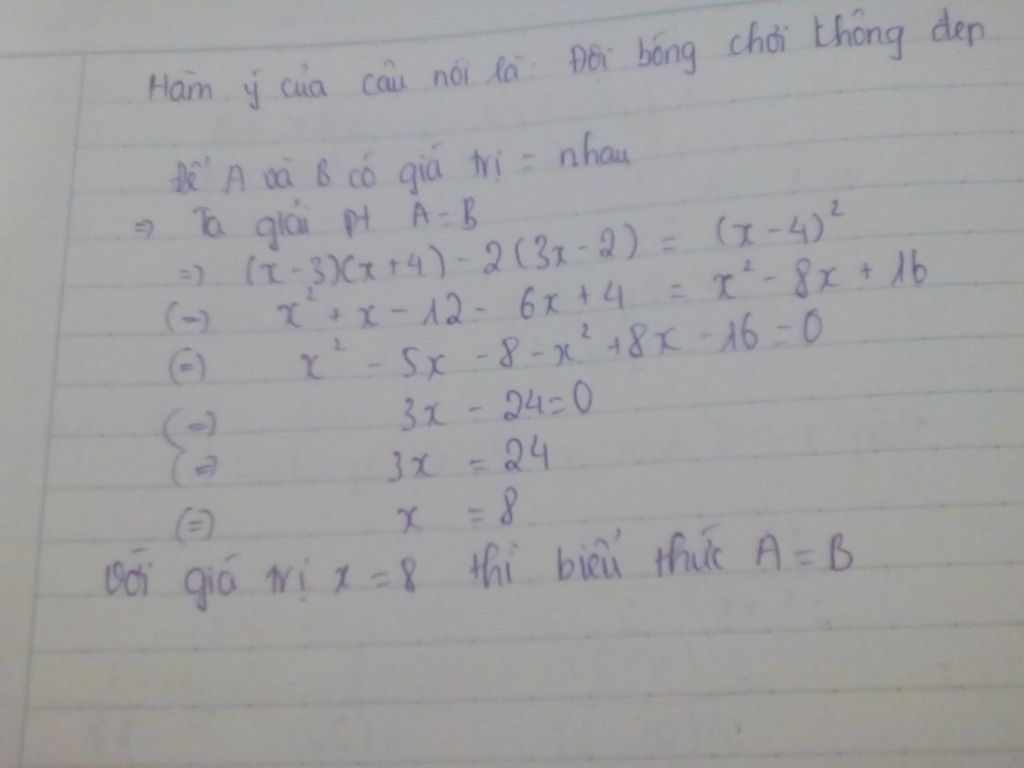 Hàm ý của câu nói là: Đội bóng chơi không đẹp
Để A và B có giá trị = nhau
=> Ta giải pt A = B
=> (x - 3)(x + 4) - 2(3x - 2) = (x - 4)²
(=) x² + x - 12 - 6x + 4 = x² - 8x + 16
(=) x² - 5x - 8 - x² + 8x - 16 = 0
(=) 3x - 24 = 0
(=) 3x = 24
(=) x = 8
Với giá trị x = 8 thì biểu thức A = B